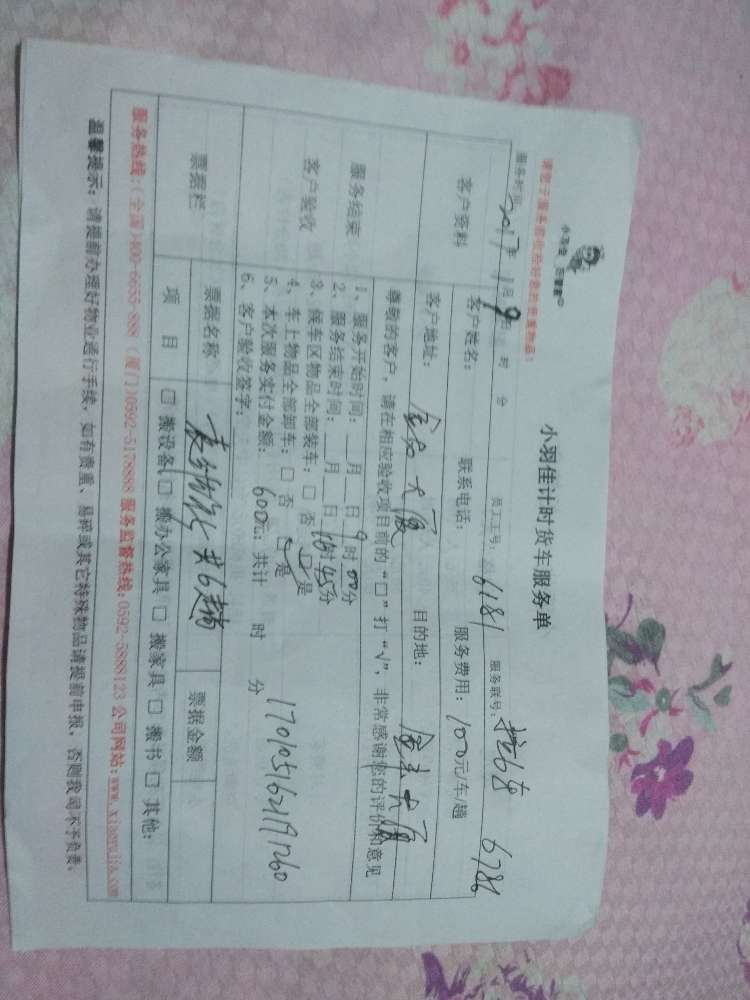 小羽佳计时货车服务单
服务时间: 2017年 1月 9日 时 分 员工工号: 6181 服务联号: 6786
客户资料 客户姓名: 联系电话: 服务费用: 100元/车/趟
客户地址: 大厦 目的地: 大厦
尊敬的客户,请在相应验收项目前的“□”打“√”,非常感谢您的评价和意见
服务结束
客户验收
1、服务开始时间:__月__日 9时00分
2、服务结束时间:__月__日 16时45分
3、候车区物品全部装车:□ 否 □ 是
4、车上物品全部卸车:□ 否 □ 是
5、本次服务实付金额: 600元; 共计 时 分
6、客户验收签字:
共6趟
票据栏 票据名称 票据金额
项 目 □ 搬设备 □ 搬办公家具 □ 搬家具 □ 搬书 □ 其他:
服务热线:(全国)400-6655-888 (厦门)0592-5178888 服务监督热线:0592-5888123 公司网站:www.xiaoyujia.com
温馨提示:请提前办理好物业通行手续,如有贵重、易碎或其它特殊物品请提前申报,否则我司不予负责。